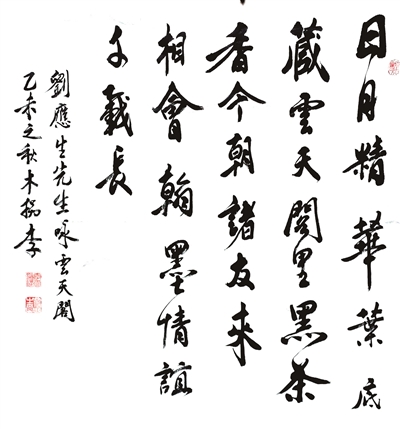 日月精華葉底
藏雲天閣里黑茶
香今朝諸友來
相會翰墨情誼
千載長
劉應生先生咏雲天閣
乙未之秋木楊李